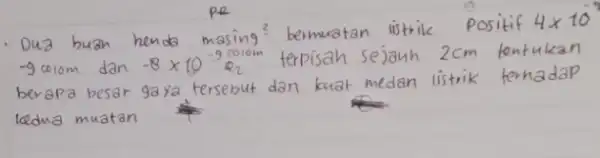 · Dua buah benda masing² bermuatan listrik positif 4 x 10
-9 colom dan -8 x 10 -9 colom terpisah sejauh 2cm tentukan
berapa besar gaya tersebut dan kuat medan listrik terhadap
kedua muatan